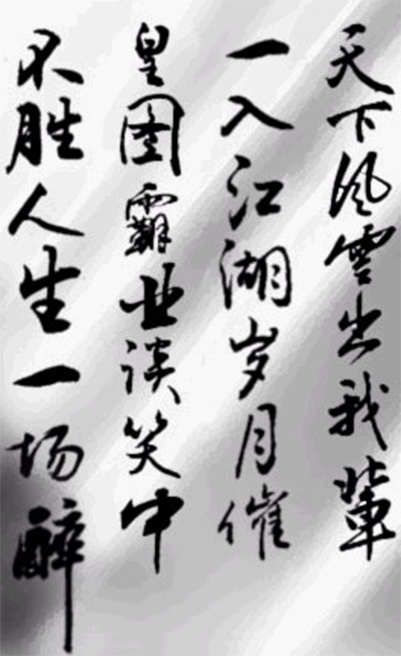 天下风雲出我辈
一入江湖岁月催
皇图霸业谈笑中
不胜人生一场醉